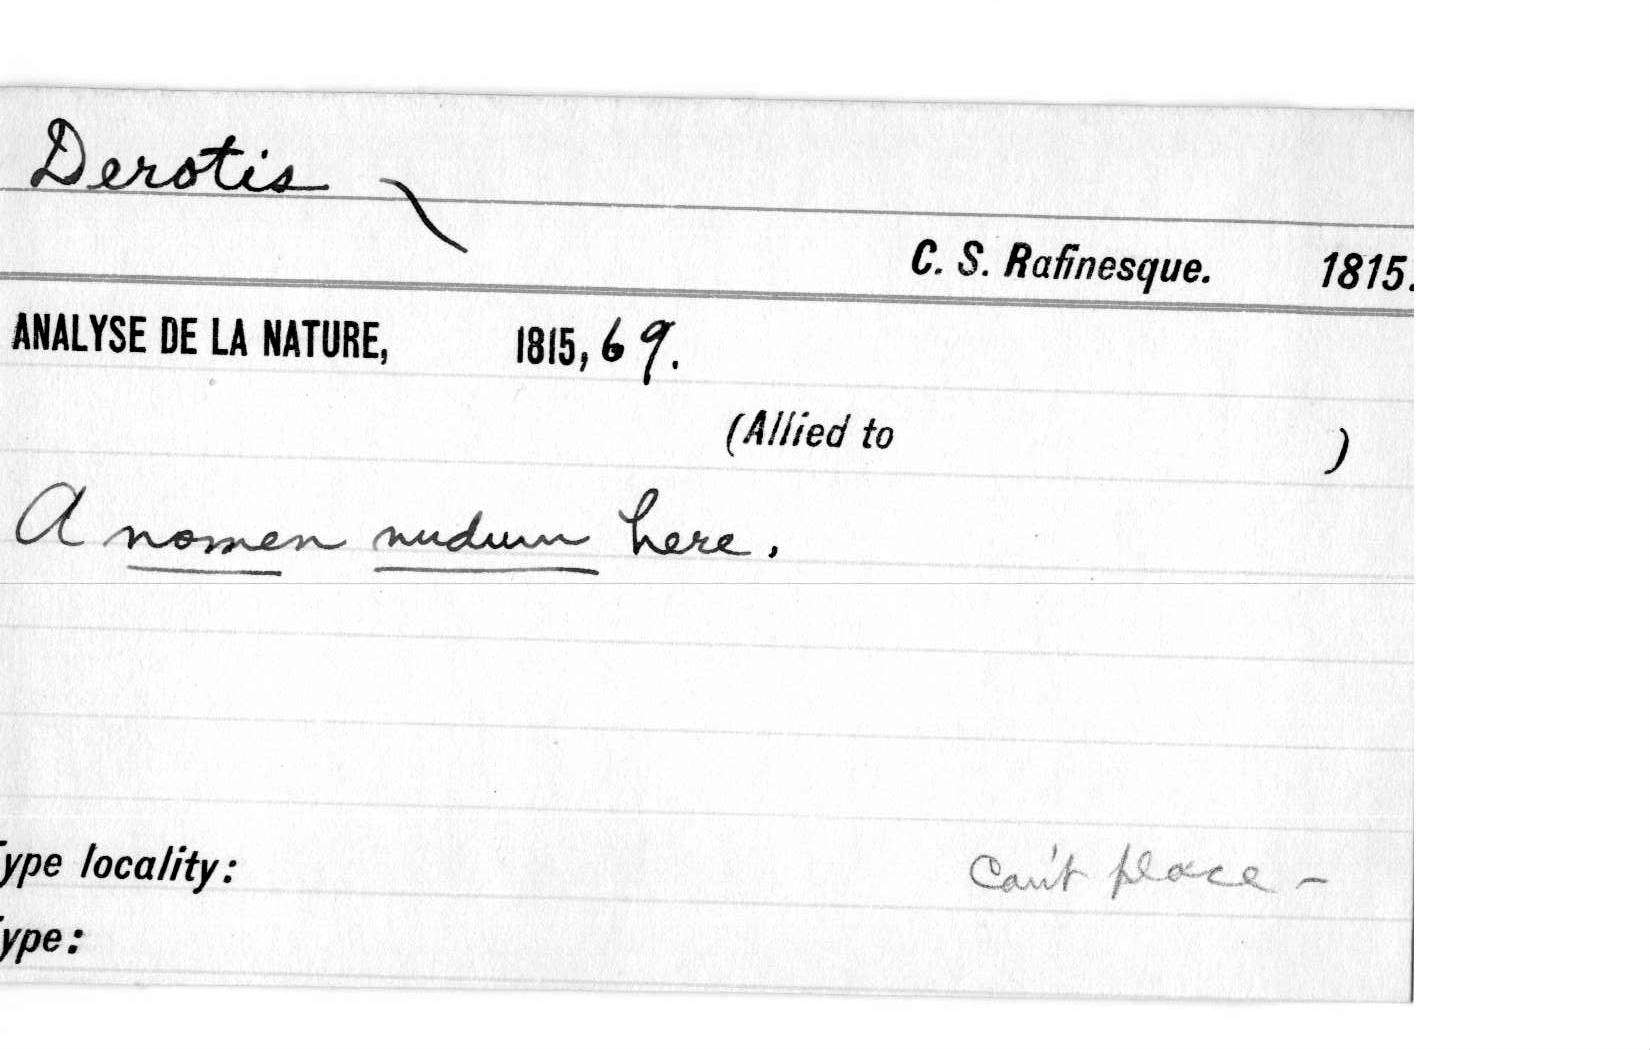 Derotis
C. S. Rafinesque. 1815.
ANALYSE DE LA NATURE, 1815, 69.
(Allied to )
A nomen nudum here.
ype locality: Can't place -
ype: